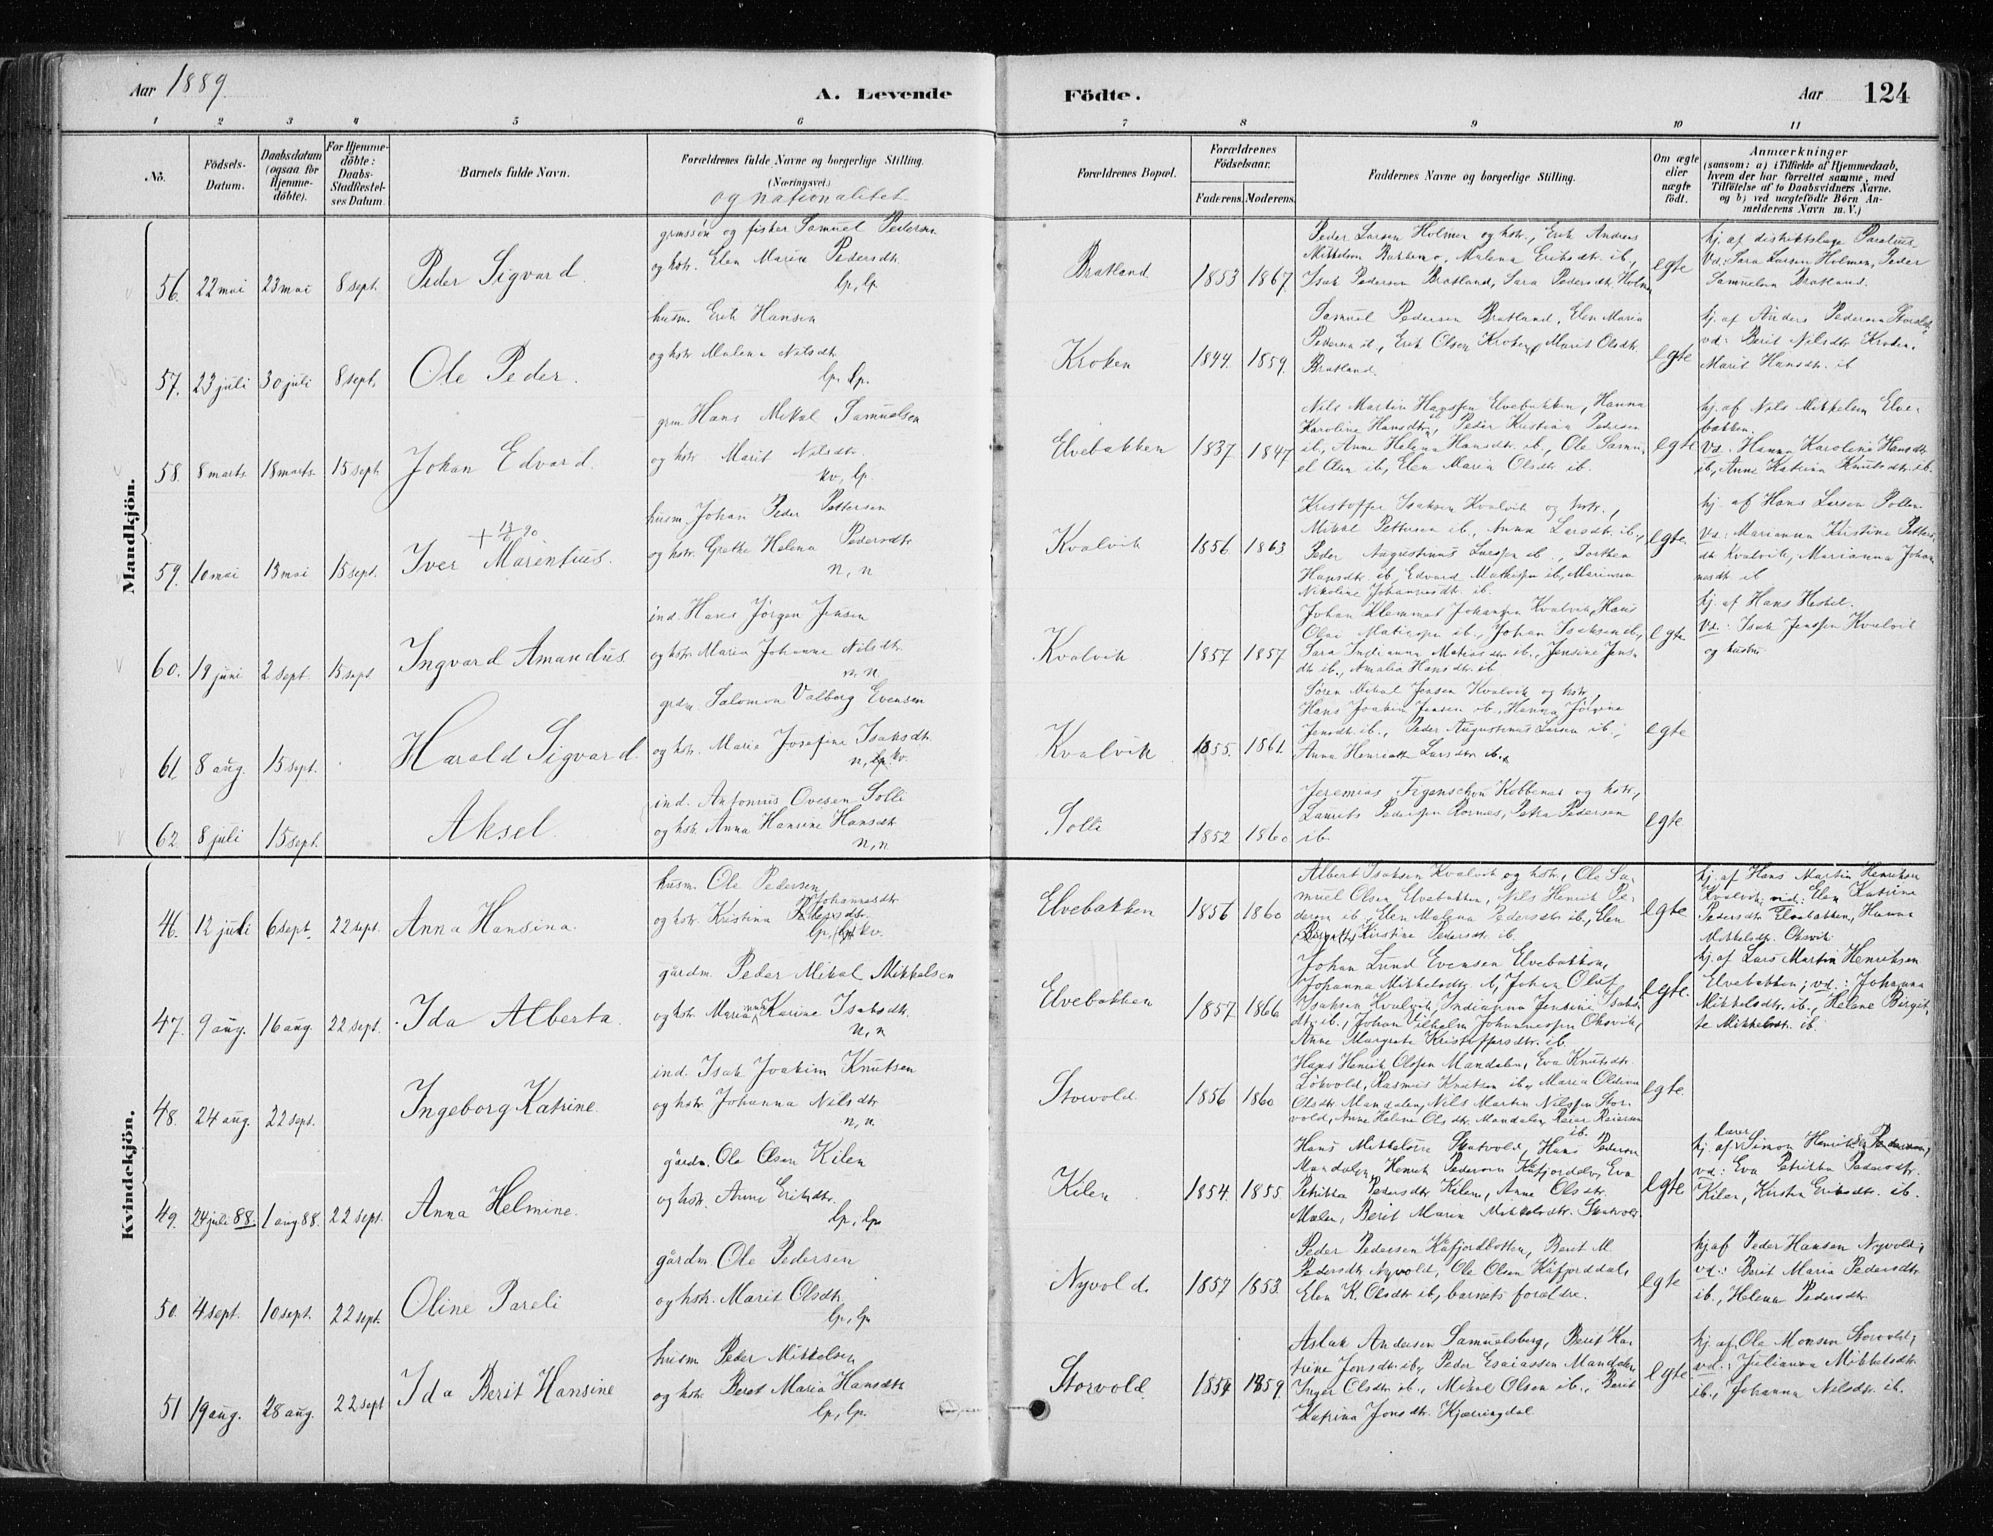 Aar 1889
A. Levende Födte.
Aar 124
1 2 3 4 5 6 7 8 9 10 11
No. Födsels-Datum. Daabsdatum (ogsaa for Hjemmedöbte). For Hjemmedöbte: Daabs-Stadfæstelses Datum. Barnets fulde Navn. Forældrenes fulde Navne og borgerlige Stilling. (Næringsvei.) og nationalitet Forældrenes Bopæl. Forældrenes Födselsaar. Faderens. Moderens. Faddernes Navne og borgerlige Stilling. Om ægte eller uægte födt. Anmærkninger (saasom: a) i Tilfælde af Hjemmedaab, hvem der har forrettet samme, med Tilföielse af to Daabsvidners Navne. og b) ved uægtefödte Börn Anmelderens Navn m. V.)
Mandkjön.
56. 22 mai 23 mai 8 sept. Peder Sigvard
grmssön og fisker Samuel Pedersen
og hstr. Elen Maria Pedersdtr.
lp, lp
Bratland 1853 1867
Peder Larsen Holmen og hstr., Erik Andreas
Mikkelsen, Malena Eriksdtr. ib.,
Isak Pedersen Bratland, Sara Pedersdtr. Holmen
egte
hj. af distriktslæge
Vd: Sara Larsen Holmen, Peder
Samuelsen Bratland.
57. 23 juli 30 juli 8 sept. Ole Peder.
husm. Erik Hansen
og hstr. Malena Nilsdtr.
lp, lp.
Kroken 1844. 1859.
Samuel Pedersen Bratland, Elen Maria
Pedersen ib, Erik Olsen Kroken, Marit Olsdtr.
Bratland.
egte
hj. af Anders Pedersen
vd: Berit Nilsdtr. Kroken,
Marit Hansdtr. ib
58. 8 marts 18 marts. 15 sept. Johan Edvard.
grm. Hans Mikal Samuelsen
og hstr. Marit Nilsdtr.
kv, lp.
Elvebakken 1837 1847
Nils Martin Hansen Elvebakken, Hanna
Karoline Hansdtr., Peder Kristina Pedersen
ib, Anne Helena Hansdtr. ib., Ole Samuel
Olsen ib, Elen Maria Olsdtr. ib.
egte
hj. af Nils Mikkelsen Elvebakken.
Vd: Hanna Karoline Hansdtr.
ib, Anne Katrina Knutsdtr. ib.
59. 10 mai 13 mai 15 sept. Iver Marentius.
husm. Johan Peder Pettersen
og hstr. Grethe Helena Pedersdtr.
n, n
Kvalvik 1856 1863
Kristoffer Isaksen Kvalvik og hstr.,
Mikal Pettersen ib, Anna Larsdtr. ib.,
Peder Augustinus Larsen ib.,
Hansdtr. ib, Edvard Mathisen ib,
Nikoline Johannesdtr. ib.
egte
hj. af Hans Larsen Pollen
Vd: Marianna Kristine Pettersdtr.
Kvalvik, Marianna Johannesdtr. ib
60. 19 juni 2 sept. 15 sept Ingvard Amandus
ind. Hans Jörgen Jensen
og hstr. Maria Johanne Nilsdtr.
n, n
Kvalvik 1857 1857
Johan Klemmet Johansen Kvalvik, Hans
Olai Mathisen ib., Johan Isaksen ib.,
Sara Indianna Matisdtr. ib., Jensine Jensdtr.
ib., Amalia Hansdtr. ib
egte
hj. af Hans Hestel.
Vd: Isak Jensen Kvalvik
og hustru
61 8 aug. 15 sept. Harald Sigvard
grdm. Salomon Valborg Evensen
og hstr. Maria Josefine Isaksdtr.
n, lp. kv.
Kvalvik 1855. 1861.
Sören Mikal Jensen Kvalvik og hstr.,
Hans Joakim Jensen ib., Hanna Jörgine
Jensdtr. ib., Peder Augustinus Larsen ib.,
Anna Henriette Larsdtr. ib.
egte
62. 8 juli 15 sept. Aksel.
ind. Antonius Ovesen Solli
og hstr. Anna Hansine Hansdtr.
n, n
Solli 1852 1860
Jeremias Figenschou Kobbenes og hstr.,
Laurits Pedersen, Petra Pedersen
ib.
egte
Kvindekjön.
46. 12 juli 6 sept. 22 sept. Anna Hansina.
husm. Ole Pedersen
og hstr. Kristina Johannesdtr.
lp, kv.
Elvebakken 1856 1860
Albert Isaksen Kvalvik og hstr., Ole Samuel
Olsen Elvebakken, Nils Henrik Pedersen
ib., Elen Malena Pedersdtr. ib., Elen
(Birgitte) Kirstine Pedersdtr. ib.
egte
hj. af Hans Martin Henriksen
Kvalvik; vid: Elen Katrine
Pedersdtr. Elvebakken, Hanna
Mikkelsdtr. Oksvik
47. 9 aug. 16 aug. 22 sept. Ida Alberta.
gårdm. Peder Mikal Mikkelsen
og hstr. Marianna Karine Isaksdtr.
n, n
Elvebakken 1857 1866
Johan Lund Evensen Elvebakken,
Johanna Mikkelsdtr. ib, Johan Oluf
Isaksen Kvalvik, Indianna Jensine Isaksdtr.
ib., Johan Vilhelm Johannessen Oksvik,
Anne Margrete Kristoffersdtr. ib.
egte.
hj. af Lars Martin Henriksen
Elvebakken; vd.: Johanna
Mikkelsdtr. ib., Helene Birgitte
Mikkelsdtr. ib.
48. 24 aug. 22 sept. Ingeborg Katrine.
ind. Isak Joakim Knutsen
og hstr. Johanna Nilsdtr.
n, n
Storvold 1856 1860
Hans Henrik Olsen Mandalen, Eva Knutsdtr.
Lökvold, Rasmus Knutsen ib, Maria Oldina
Olsdtr. Mandalen, Nils Martin Nilsen Storvold,
Anne Helene Olsdtr. Mandalen,
ib.
egte
49. 24 juli 88. 1 aug 88. 22 sept. Anna Helmine.
gårdm. Ole Olsen Kilen
og hstr. Anne Eriksdtr.
lp, lp
Kilen 1854. 1855.
Hans Mikkelsen, Hans Pedersen
Mandalen, Henrik Pedersen Kåfjorddalen, Eva
Petrikka Pedersdtr. Kilen, Anne Olsdtr.
Mælen, Berit Maria Mikkelsdtr.
egte
hj. af lærer Simon Henrik Pedersen,
vd: Eva Petrikka Pedersdtr.
Kilen, Kirsten Eriksdtr. ib.
50. 4 sept. 10 sept. 22 sept. Oline Pareli
gårdm. Ole Pedersen
og hstr. Marit Olsdtr.
lp, lp
Nyvold. 1857 1853
Peder Pedersen Kåfjordbotten, Berit M
Pedersdtr. Nyvold, Ole Olsen Kåfjorddal,
Elen K. Olsdtr. ib, barnets forældre.
egte
hj af Peder Hansen Nyvold;
vd.: Berit Maria Pedersdtr.
ib., Helena Pedersdtr.
51 19 aug. 28 aug. 22 sept Ida Berit Hansine
husm Peder Mikkelsen
og hstr. Beret Maria Hansdtr.
lp, lp.
Storvold 1854 1859
Aslak Andersen Samuelsberg, Berit Katrine
Jonsdtr. ib, Peder Esaiassen Mandalen,
Inger Olsdtr. ib., Mikal Olsen ib., Berit
Katrina Jonsdtr. Kjærringdal
egte
hj. af Ole Monsen Storvold;
vd.: Julianna Mikkelsdtr.
ib., Johanna Nilsdtr. ib.